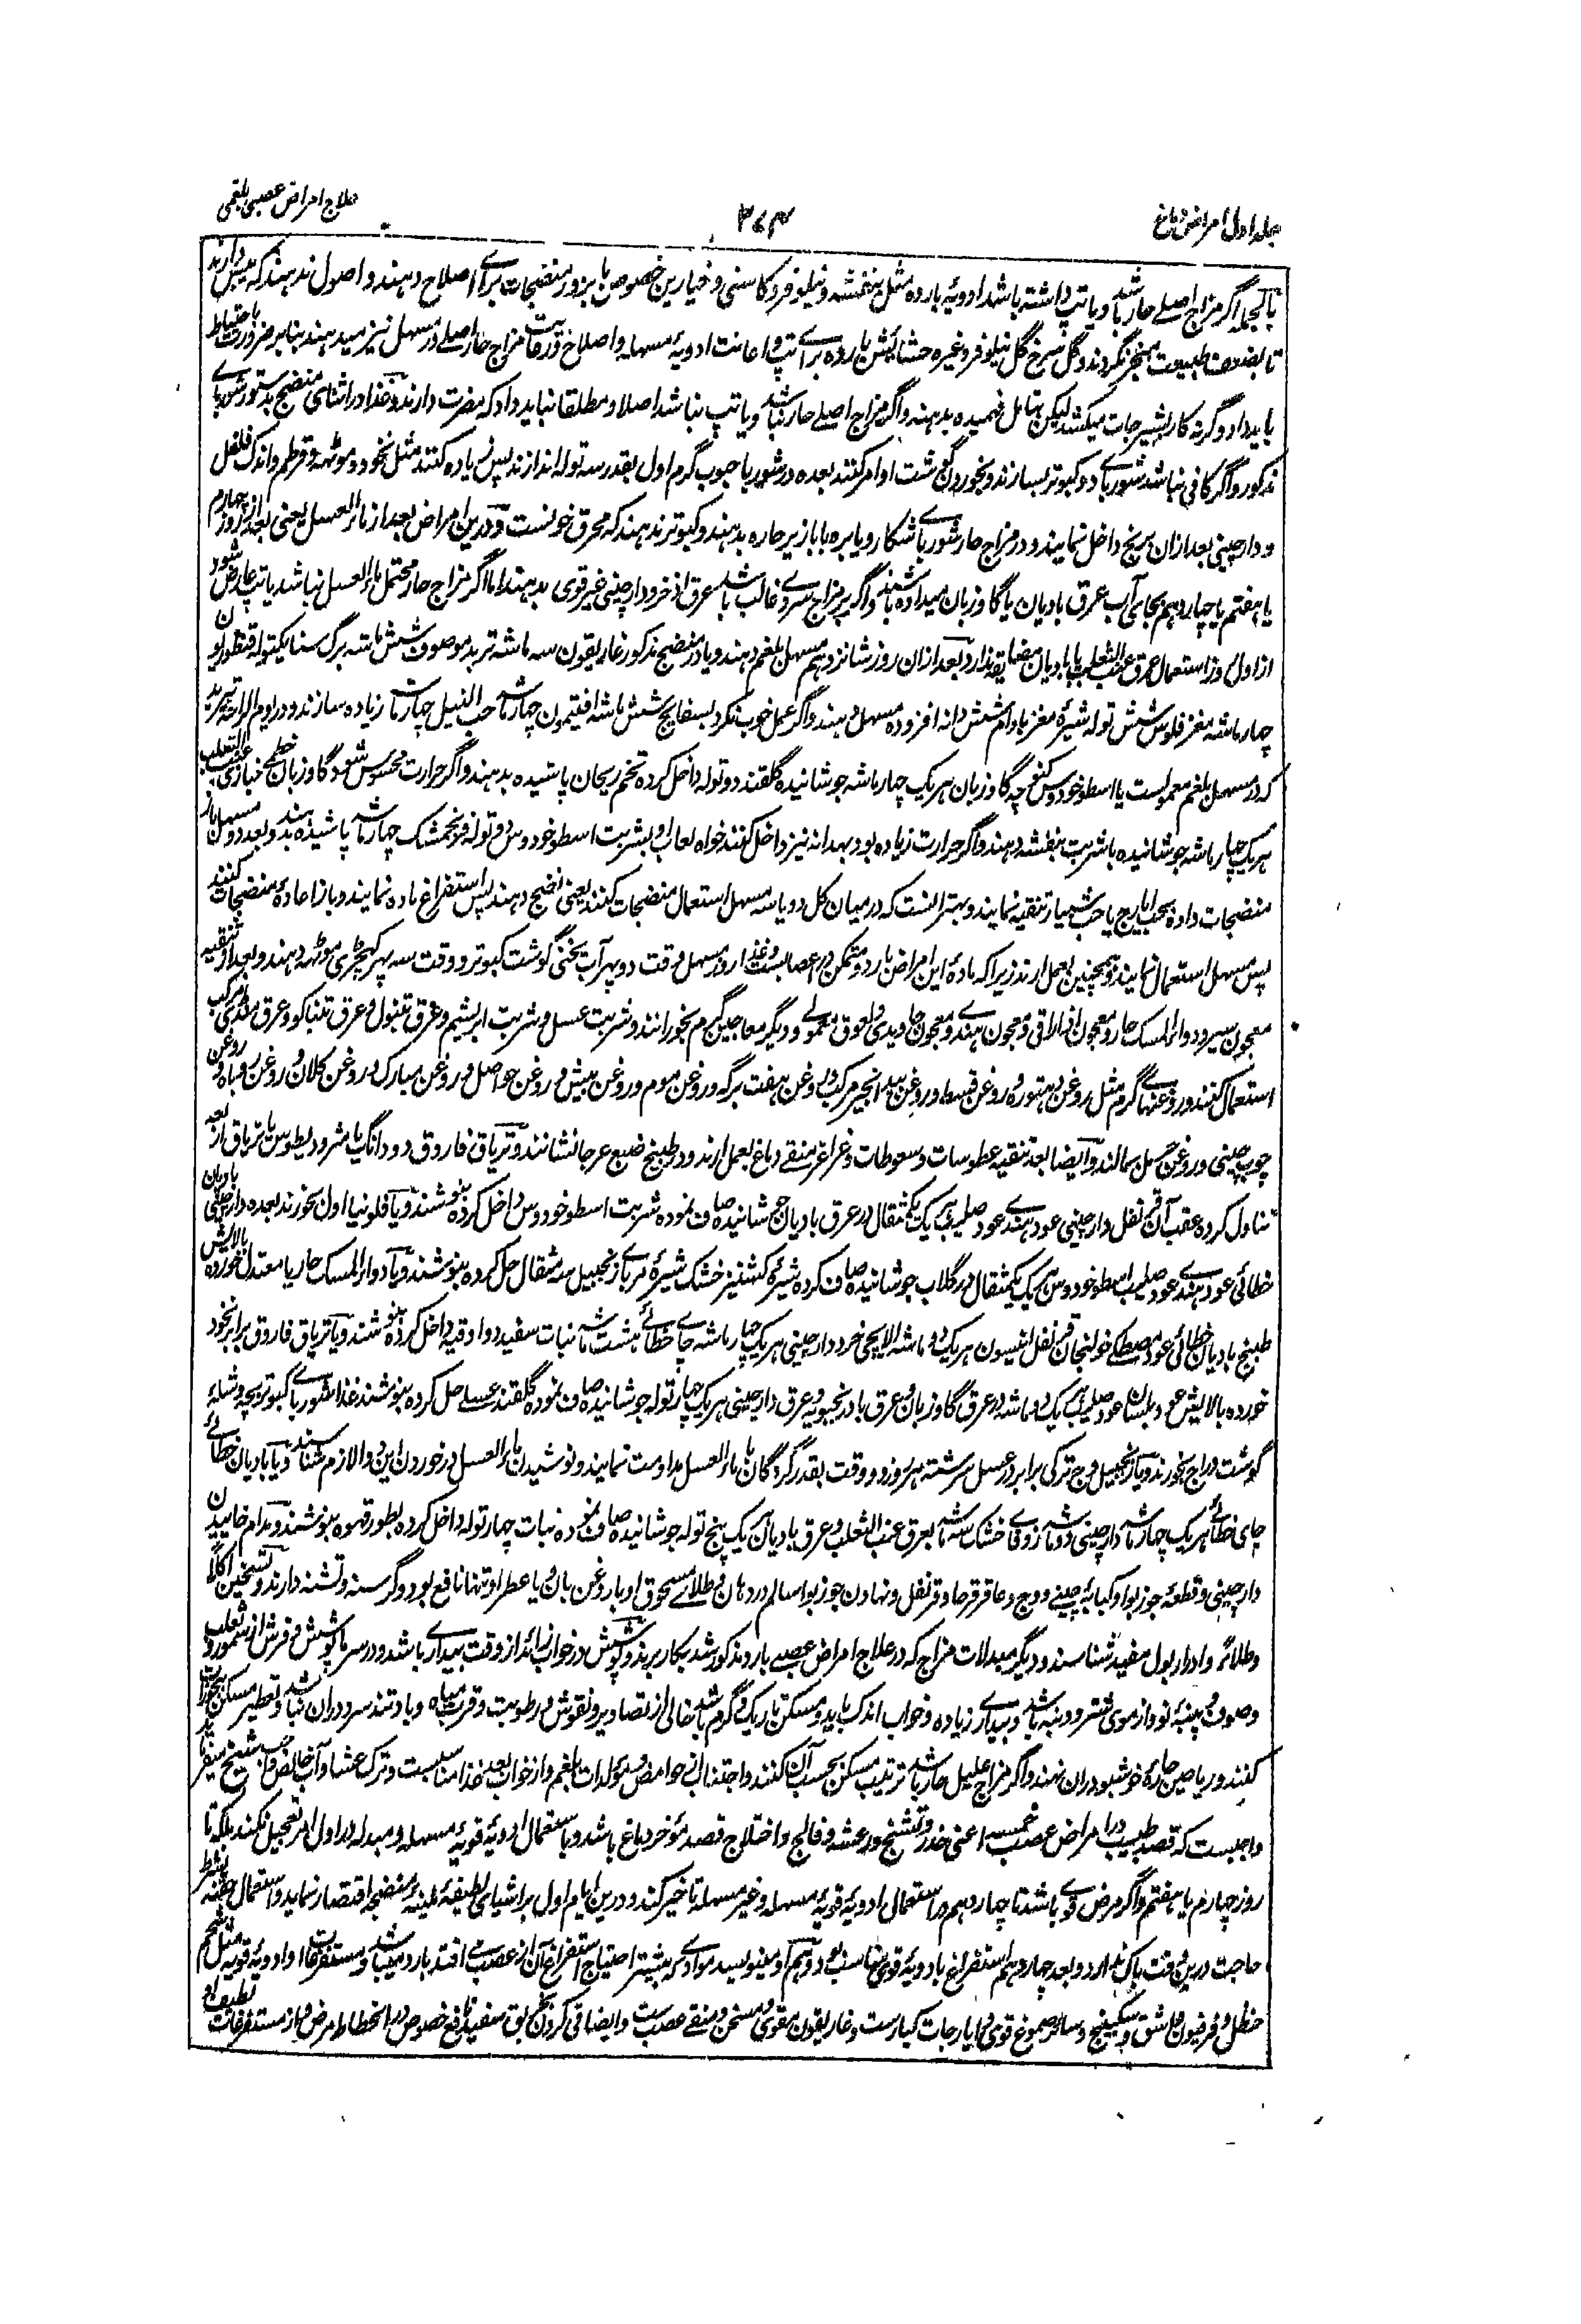 جلد اول امراض دماغ
۳۷۴
علاج امراض عصبی بلغمی
بالجمله اگر مزاج اصلے حار باشد و یا تپ داشته باشد ادویهٔ بارده مثل بنفشه و نیلوفر و کاسنی و خیارین خصوص با بزور منضجات براے اصلاح دهند و اصول ندهند که یبس دارند
تا بضعف طبیعت منجر نگردند و گل سرخ گل نیلوفر وغیره حشائش بارده براے تپ و اعانت ادویهٔ مسهله و اصلاح مزاج حار اصلے در مسهل نیز میدهند بنابر ضرورت باحتیاط
باید داد وگرنه کار بشیرجات میکشد لیکن بتامل فهمیده بدهند و اگر مزاج اصلے حار نباشد و یا تپ نباشد اصلا و مطلقا نباید داد که مضرت دارند و غذا در اثنای منضج بدستور شورباے
مذکور و اگر کافی نباشد شورباے دو کبوتر بسازند و بخوردن گوشت او امر کنند بعده در شوربا حبوب گرم اول بقدر سه توله اندازند پس زیاده کنند مثل نخود و موٹهه و قرطم و اندک فلفل
و دارچینی بعد ازان برنج داخل نمایند و در مزاج حار شورباے شکار و یا بره با بازیر حاره بدهند و کبوتر ندهند که محرق خونست و درین امراض بعد از ماء العسل یعنی بعد از روز چهارم
یا هفتم یا چهاردهم بجای آب عرق بادیان یا گاوزبان میداده باشند و اگر بر مزاج سردے غالب باشد عرق اذخر و دارچینی غیر قوی بدهند اما اگر مزاج حار محتمل ماء العسل نباشد یا تپ عارض شود
از اول روز استعمال عرق عنب الثعلب یا بادیان مضایقه ندارد بعد ازان روز شانزدهم مسهل بلغم دهند و یا در منضج مذکور غاریقون سه ماشه تربد موصوف شش ماشه برگ سنا یکتوله قنطوریون
چهار ماشه مغز فلوس شش توله شیرهٔ مغز بادام شش دانه افزوده مسهل دهند و اگر عمل خوب نکرد بسفایج شش ماشه افتیمون چهار ماشه حب النیل چهار ماشه زیاده سازند و در یوم الراحة تبرید
که در مسهل بلغم معمولست یا اسطوخودوس گاوزبان هر یک چهار ماشه جوشانیده گلقند دو توله داخل کرده تخم ریحان پاشیده بدهند و اگر حرارت محسوس شود گاوزبان خطمی خبازی عنب الثعلب
هر یک چهار ماشه جوشانیده با شربت بنفشه دهند و اگر حرارت زیاده بود بهدانه نیز داخل کنند خواه لعاب او بشربت اسطوخودوس دو توله فرنجمشک چهار ماشه پاشیده بدهند و بعد دو مسهل باز
منضجات داده بحب ایارج یا حب شبیار تنقیه نمایند و بهتر آنست که در میان کل دو یا سه مسهل استعمال منضجات کنند یعنی نضج دهند پس استفراغ ماده نمایند و باز اعادهٔ منضجات کنند
پس مسهل استعمال نمایند و همچنین بعمل آرند زیرا که مادهٔ این امراض بارد و متمکن در اعصابست و غذا روز مسهل وقت دوپهر آب یخنی گوشت کبوتر و وقت سه پهر کهچڑی موٹهه دهند و بعد از تنقیه
معجون سیر و دواء المسک حار و معجون اذاراقی و معجون هندے و معجون جاویدی و لعوق معمولے و دیگر معاجین گرم بخورانند و شربت عسل و شربت ابریشم و عرق تنبول و عرق تنباکو و عرق مرکب
استعمال کنند و روغنهاے گرم مثل روغن دهتوره و روغن قسط و روغن بیدانجیر مرکب و روغن هفت برگه و روغن موم و روغن بیش و روغن حواصل و روغن مبارک و روغن کلان و روغن
چوب چینی و روغن گل بمالند و ایضا بعد تنقیه عطوسات و سعوطات و غراغر منقے دماغ بعمل آرند و در طبیخ ضبع عرجا نشانند و تریاق فاروق دو دانگ یا مثرودیطوس یا تریاق اربعه
تناول کرده عقب آن قرنفل دارچینی عود هندے عود صلیب هر یک یکمثقال در عرق بادیان جوشانیده صاف نموده شربت اسطوخودوس داخل کرده بنوشند و یا فلونیا اول بخورند بعده دارچینی بادیان
خطائی عود هندے عود صلیب اسطوخودوس هر یک یکمثقال در گلاب جوشانیده صاف کرده شیرهٔ کشنیز خشک شیرهٔ مرباے زنجبیل سه مثقال حل کرده بنوشند و یا دواء المسک حار یا معتدل خورده بالایش
طبیخ بادیان خطائی عود مصطگے خولنجان قرنفل انیسون هر یک دو ماشه الایچی خرد دارچینی هر یک چهار ماشه چاے خطائے هشت ماشه نبات سفید دو اوقیه داخل کرده بنوشند و یا تریاق فاروق برابر نخود
خورده بالایش عود بلسان عود صلیب هر یک دو ماشه در عرق گاوزبان و عرق بادرنجبویه و عرق دارچینی هر یک چهار توله جوشانیده صاف نموده گلقند عسلے حل کرده بنوشند غذا شورباے کبوتر بچه و شلهٔ
گوشت دراج بخورند و یا زنجبیل و وج ترکی برابر در عسل سرشته هر روز دو وقت بقدر گردگان با ماء العسل مداومت نمایند و نوشیدن ماء العسل در خوردن این دوا لازم شناسند و یا بادیان خطائے
چای خطائے هر یک چهار ماشه دارچینی دو ماشه زوفاے خشک سه ماشه بعرق عنب الثعلب و عرق بادیان هر یک پنج توله جوشانیده صاف نموده نبات چهار توله داخل کرده بطور قهوه بنوشند و مدام خاییدن
دارچینی و قطعهٔ جوزبوا و کبابهٔ چینے و وج و عاقرقرحا و قرنفل و نهادن جوزبوا سالم در دهان و طلاے مسحوق او با روغن بان و یا عطر او تنها نافع بود و گرسنه و تشنه دارند و تسخین اکلا
و طلاءً و ادرار بول مفید شناسند و دیگر مبدلات مزاج که در علاج امراض عصبے بارد مذکور شد بکار برند و پوشش در خواب زائد از وقت بیداری باشد و در سرما پوشش و فرش از سمور و ثعلب
و صوف و پنبهٔ نو و از موی شتر و دنبه باشد و بیداری زیاده و خواب اندک باید و مسکن تاریک و گرم باشد خالی از تصاویر و نقوش و رطوبت و قرب میاه و باد تند سرد دران نباشد و تعطیر مسکن
کنند و ریاحین حارهٔ خوشبو دران نهند و اگر مزاج علیل حار باشد ترتیب مسکن بحسب آن کنند و اجتناب از حوامض و مولدات بلغم و از خواب بعد غذا مناسبست و ترک عشا و آب خالص شیخ میفرماید
واجبست که قصد طبیب در امراض عصب خمسه اعنی خدر و تشنج و رعشه و فالج و اختلاج قصد موخر دماغ باشد و باستعمال ادویهٔ قویهٔ مسهله و مبدله در اول امر تعجیل نکند بلکه تا
روز چهارم یا هفتم و اگر مرض قوی باشد تا چهاردهم در استعمال ادویهٔ قویهٔ مسهله و غیر مسهله تاخیر کند و درین ایام اول بر اشیای لطیفهٔ ملینهٔ منضجه اقتصار نماید و استعمال حقنه بشرط
حاجت درین وقت باک ندارد و بعد چهاردهم استفراغ بادویهٔ قوی مناسب بود و هم او مینویسد موادے که بیشتر احتیاج استفراغ آن از عصب افتد بارد میباشد و مستفرغات او ادویهٔ قویه مثل شحم
حنظل و فرفیون و اشق و سکبینج و سائر صموغ قوی و ایارجات کبارست و غاریقون مقوی و مسخن و منقے عصبست و ایضا قی کردن بخربق سفید نافع خصوص در انحطاط مرض و از مستفرغات لطیف او